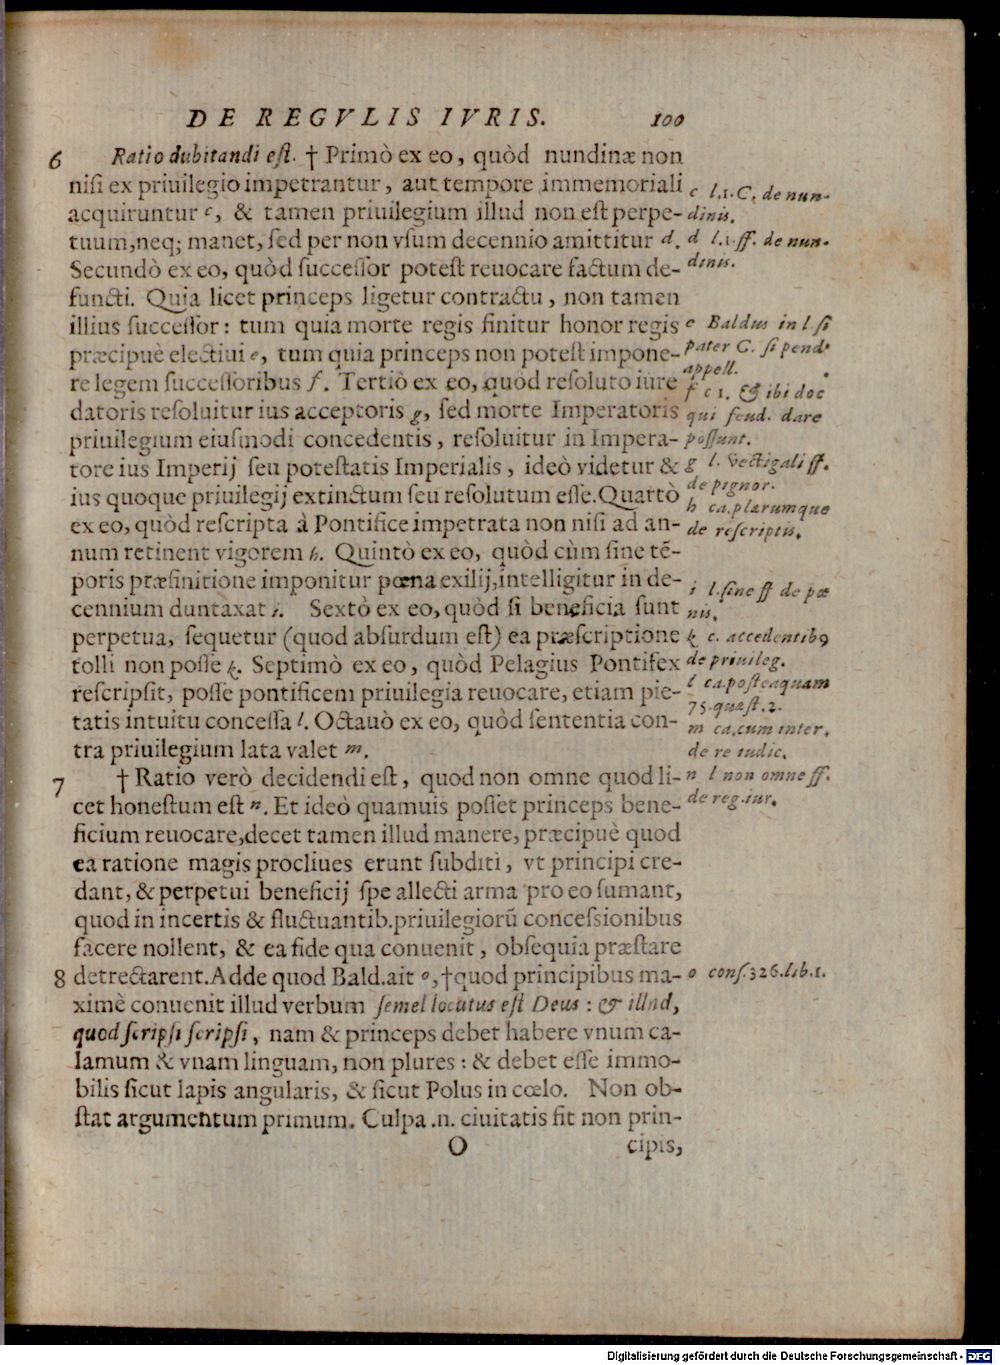 DE REGVLIS IVRIS. 100
6 Ratio dubitandi est. † Primò ex eo, quòd nundinæ non
nisi ex priuilegio impetrantur, aut tempore immemoriali
acquiruntur c, & tamen priuilegium illud non est perpe-
tuum, neq; manet, sed per non vsum decennio amittitur d.
Secundò ex eo, quòd successor potest reuocare factum de-
functi. Quia licet princeps ligetur contractu, non tamen
illius successor: tum quia morte regis finitur honor regis
præcipuè electiui e, tum quia princeps non potest impone-
re legem successoribus f. Tertiò ex eo, quòd resoluto iure
datoris resoluitur ius acceptoris g, sed morte Imperatoris
priuilegium eiusmodi concedentis, resoluitur in Impera-
tore ius Imperij seu potestatis Imperialis, ideò videtur &
ius quoque priuilegij extinctum seu resolutum esse. Quartò
ex eo, quòd rescripta à Pontifice impetrata non nisi ad an-
num retinent vigorem h. Quintò ex eo, quòd cùm sine tē-
poris præfinitione imponitur pœna exilij, intelligitur in de-
cennium duntaxat i. Sextò ex eo, quòd si beneficia sunt
perpetua, sequetur (quod absurdum est) ea præscriptione
tolli non posse k. Septimò ex eo, quòd Pelagius Pontifex
rescripsit, posse pontificem priuilegia reuocare, etiam pie-
tatis intuitu concessa l. Octauò ex eo, quòd sententia con-
tra priuilegium lata valet m.
7 † Ratio verò decidendi est, quod non omne quod li-
cet honestum est n. Et ideò quamuis posset princeps bene-
ficium reuocare, decet tamen illud manere, præcipuè quod
ea ratione magis procliues erunt subditi, vt principi cre-
dant, & perpetui beneficij spe allecti arma pro eo sumant,
quod in incertis & fluctuantib. priuilegiorū concessionibus
facere nollent, & ea fide qua conuenit, obsequia præstare
8 detrectarent. Adde quod Bald. ait o, † quod principibus ma-
ximè conuenit illud verbum semel locutus est Deus: & illud,
quod scripsi scripsi, nam & princeps debet habere vnum ca-
lamum & vnam linguam, non plures: & debet esse immo-
bilis sicut lapis angularis, & sicut Polus in cœlo. Non ob-
stat argumentum primum. Culpa .n. ciuitatis fit non prin-
O cipis,
c l.1. C. de nun-
dinis.
d l.1. ff. de nun-
dinis.
e Baldus in l. si
pater C. si pend.
appell.
f c 1. & ibi doc
qui feud. dare
possunt.
g l. Vectigali ff.
de pignor.
h ca. plærumque
de rescriptis.
i l. sine ff de pœ
nis.
k c. accedentibꝰ
de priuileg.
l ca. posteaquam
75. quæst. 2.
m ca. cum inter.
de re iudic.
n l non omne ff.
de reg. iur.
o cons. 326. lib. 1.
Digitalisierung gefördert durch die Deutsche Forschungsgemeinschaft - DFG